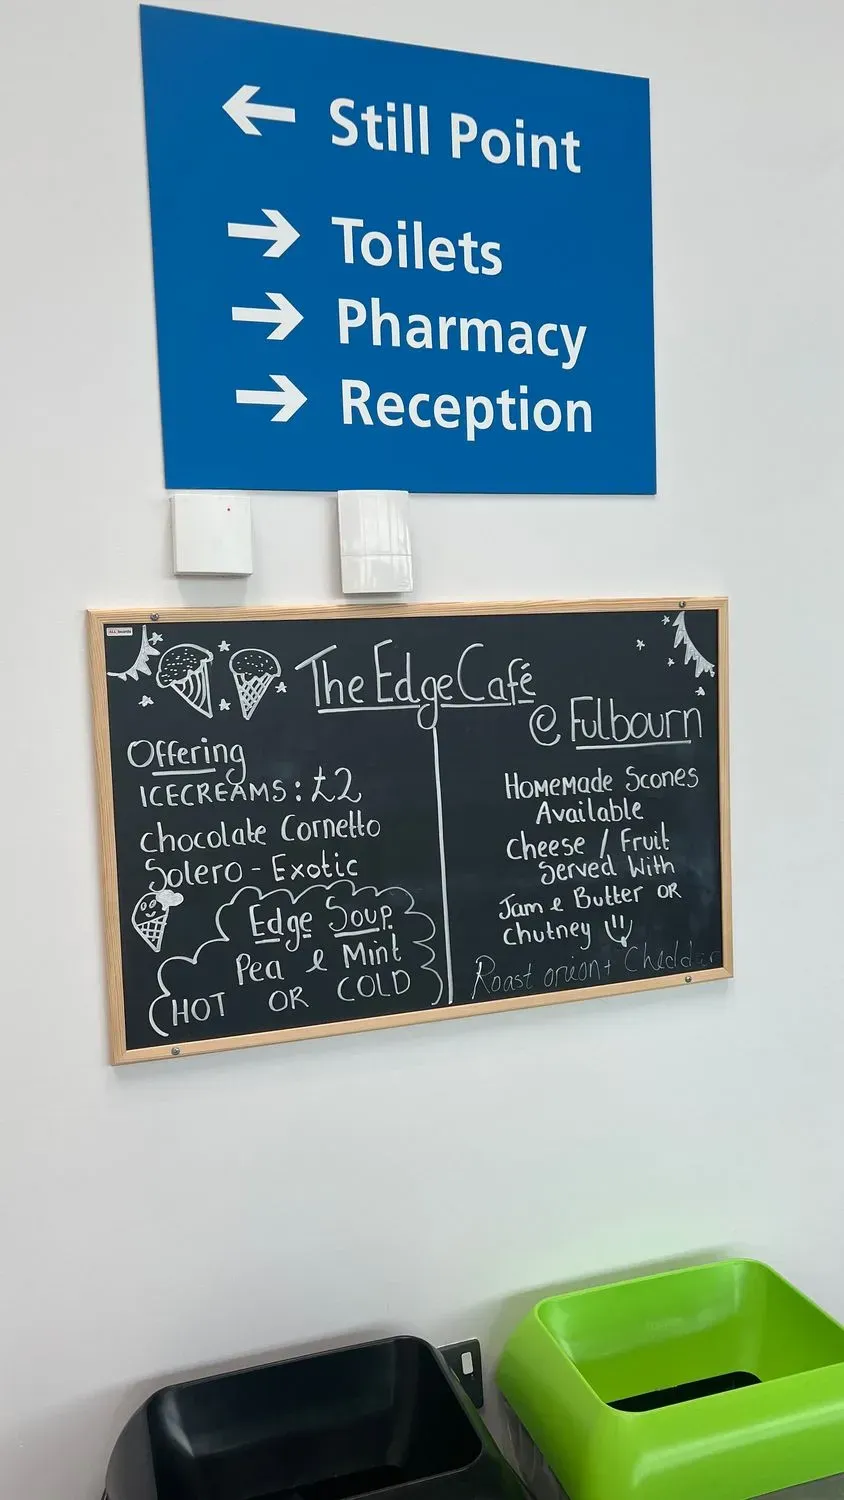 ← Still Point
→ Toilets
→ Pharmacy
→ Reception
The Edge Café
@ Fulbourn
Offering
ICECREAMS: £2
Chocolate Cornetto
Solero - Exotic
Edge Soup
Pea & Mint
HOT OR COLD
Homemade Scones
Available
Cheese / Fruit
Served With
Jam & Butter OR
Chutney
Roast onion + Cheddar